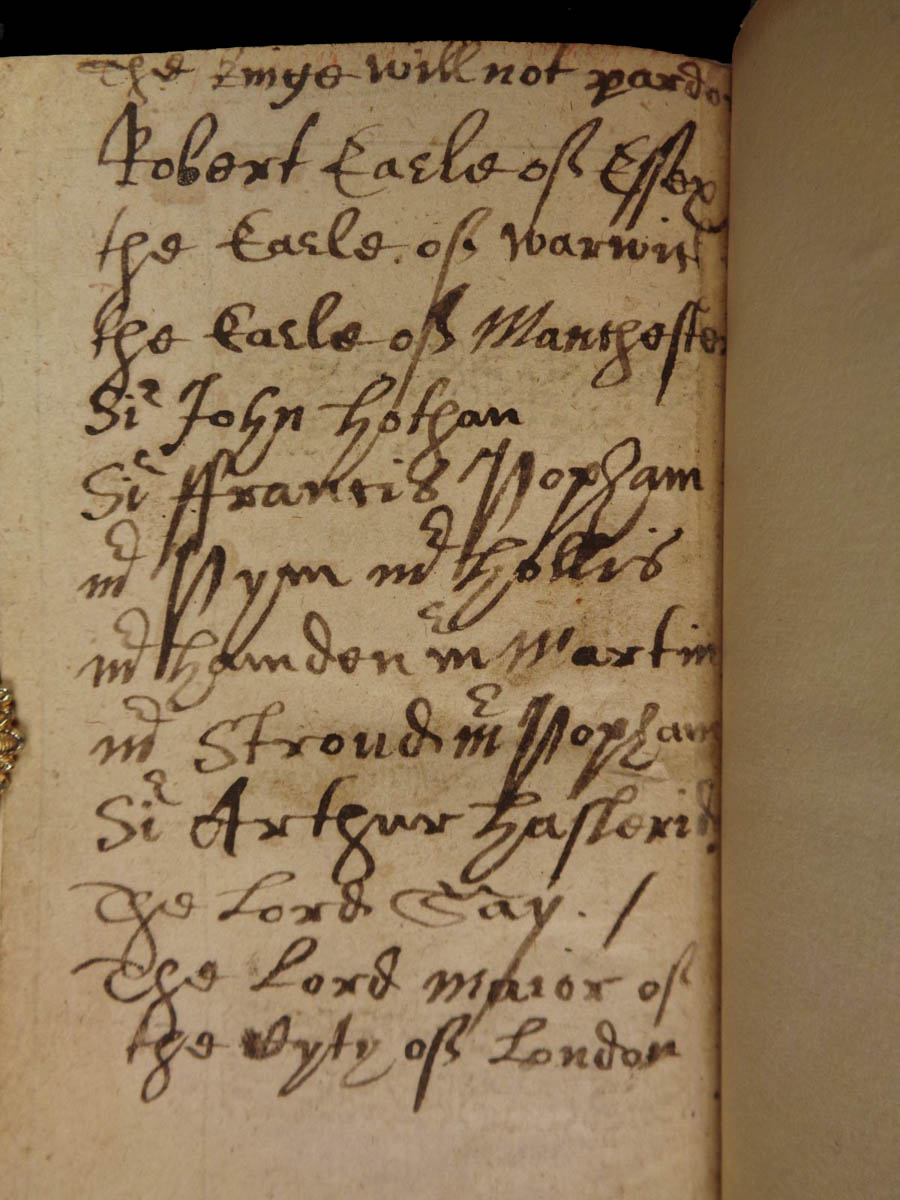 The Kinge will not pardo
Robert Earle off Essex
the Earle off warwic
the Earle off Manchester
Sir John Hothan
Sir ffrancis Popham
mr Pym mr Hollis
mr Hamden mr Martin
mr Stroud mr Popham
Sir Arthur Haslerid
The Lord Say. /
The Lord Maior off
the Cyty off London